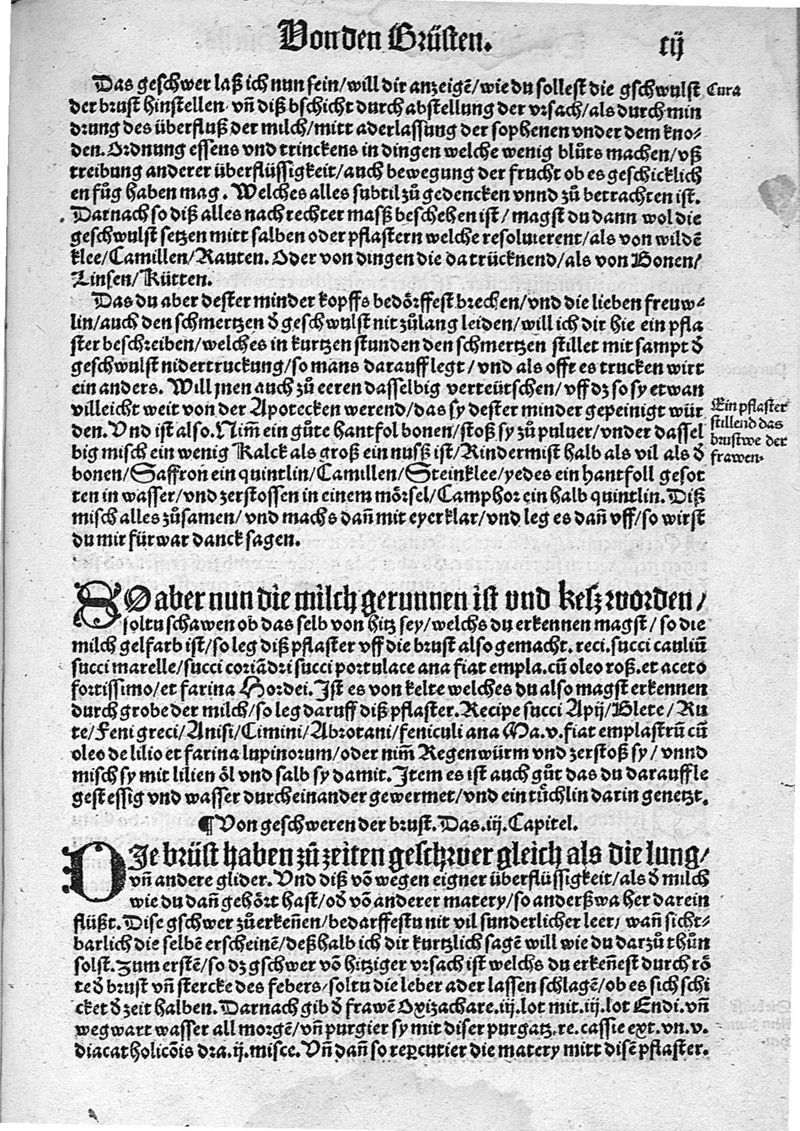 Von den Brüsten. cij
Das geschwer laß ich nun sein/will dir anzeigē/wie du sollest die gschwulst
Cura
der brust hinstellen. vñ diß bschicht durch abstellung der vrsach/als durch min
drung des überfluß der milch/mitt aderlassung der sophenen vnder dem kno-
den. Ordnung essens vnd trinckens in dingen welche wenig blůts machen/vß
treibung anderer überflüssigkeit/auch bewegung der frucht ob es geschicklich
en fůg haben mag. Welches alles subtil zů gedencken vnnd zů betrachten ist.
Darnach so diß alles nach rechter masß beschehen ist/magst du dann wol die
geschwulst setzen mitt salben oder pflastern welche resoluierent/als von wildē
klee/Camillen/Rauten. Oder von dingen die da trücknend/als von Bonen/
Linsen/Kütten.
Das du aber dester minder kopffs bedörffest brechen/vnd die lieben freuw-
lin/auch den schmertzen đ geschwulst nit zůlang leiden/will ich dir hie ein pfla
ster beschreiben/welches in kurtzen stunden den schmertzen stillet mit sampt đ
geschwulst nidertruckung/so mans darauff legt/vnd als offt es trucken wirt
ein anders. Will jnen auch zů eeren dasselbig verteütschen/vff dz so sy etwan
villeicht weit von der Apotecken werend/das sy dester minder gepeinigt wür
den. Vnd ist also. Nim̄ ein gůte hantfol bonen/stoß sy zů puluer/vnder dassel
big misch ein wenig Kalck als groß ein nusß ist/Rindermist halb als vil als đ
bonen/Saffron ein quintlin/Camillen/Steinklee/yedes ein hantfoll gesot
ten in wasser/vnd zerstossen in einem mörsel/Camphor ein halb quintlin. Diß
misch alles zůsamen/vnd machs dañ mit eyerklar/vnd leg es dañ vff/so wirst
du mir fürwar danck sagen.
Ein pflaster
stillend das
brustwe der
frawen.
SO aber nun die milch gerunnen ist vnd kesz worden/
soltu schawen ob das selb von hitz sey/welchs du erkennen magst/so die
milch gelfarb ist/so leg diß pflaster vff die brust also gemacht. reci. succi cauliū
succi marelle/succi coriādri succi portulace ana fiat empla. cū oleo roß. et aceto
fortissimo/et farina Hordei. Ist es von kelte welches du also magst erkennen
durch grobe der milch/so leg daruff diß pflaster. Recipe succi Apij/Blete/Ru
te/Feni greci/Anisi/Cimini/Abrotani/feniculi ana Ma. v. fiat emplastrū cū
oleo de lilio et farina lupinorum/oder nim̄ Regenwürm vnd zerstoß sy/vnnd
misch sy mit lilien öl vnd salb sy damit. Item es ist auch gůt das du darauff le
gest essig vnd wasser durcheinander gewermet/vnd ein tüchlin darin genetzt.
¶ Von geschweren der brust. Das. iij. Capitel.
DIe brüst haben zů zeiten geschwer gleich als die lung/
vñ andere glider. Vnd diß vō wegen eigner überflüssigkeit/als đ milch
wie du dañ gehört hast/ođ vō anderer matery/so anderßwa her darein
flüßt. Dise gschwer zů erkeñen/bedarffestu nit vil sunderlicher leer/wañ sicht-
barlich die selbē erscheinē/deßhalb ich dir kurtzlich sagē will wie du darzů thůn
solst. Zum erstē/so dz gschwer vō hitziger vrsach ist welchs du erkeñest durch rö
te đ brust vñ stercke des febers/soltu die leber ader lassen schlagē/ob es sich schi
cket đ zeit halben. Darnach gib đ frawē Oxizachare. iij. lot mit. iij. lot Endi. vñ
wegwart wasser all morgē/vñ purgier sy mit diser purgatz. re. cassie ext. vn. v.
diacatholicōis dra. ij. misce. Vñ dañ so repercutier die matery mitt disē pflaster.